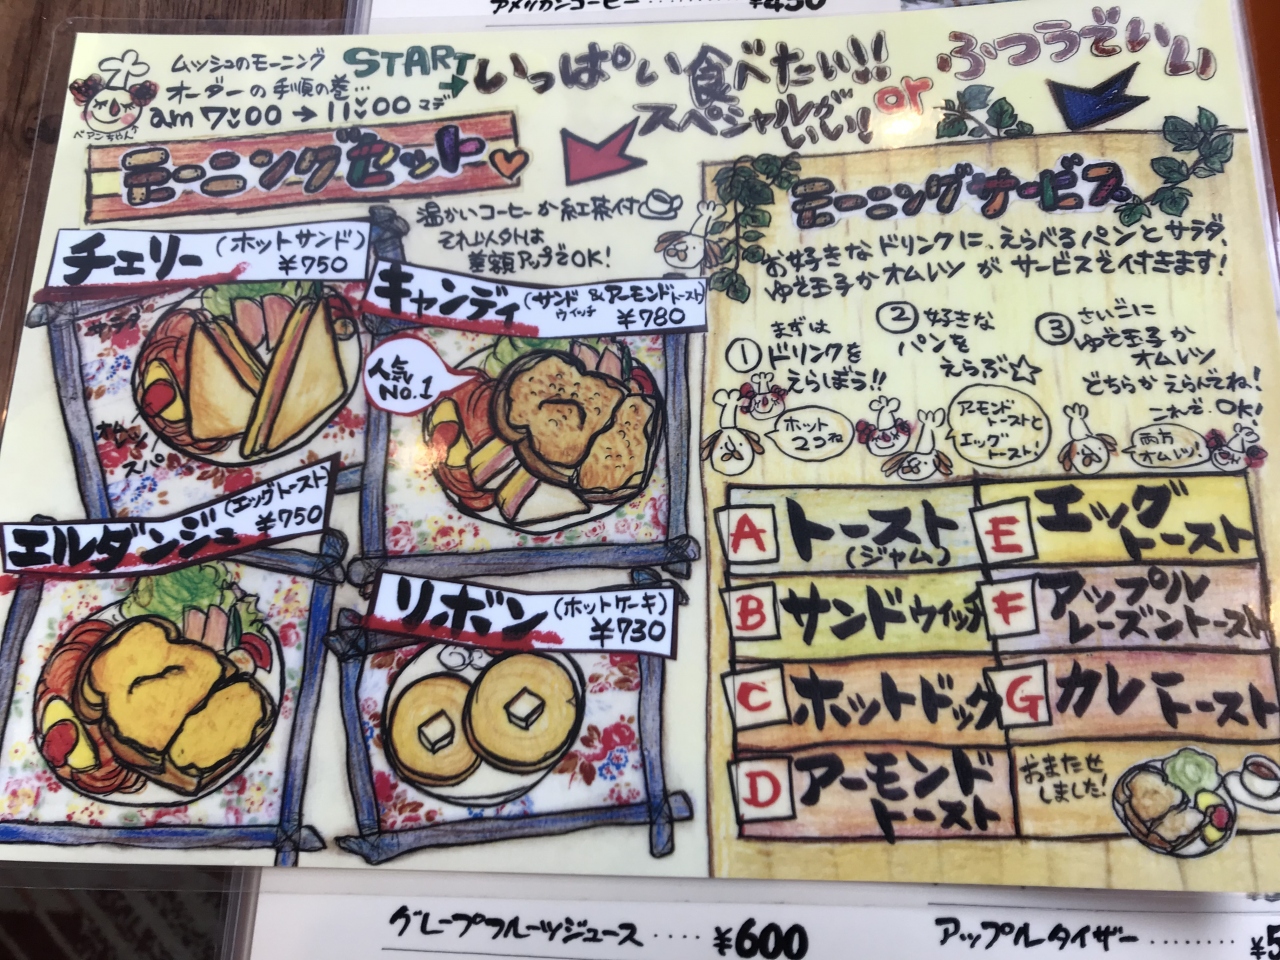 アメリカンコーヒー ........ ¥450
ムッシュのモーニング
オーダーの手順の巻…
am 7:00→11:00マデ
ペアンちゃん↑
START
いっぱい食べたい!!
スペシャルが
いい!
or
ふつうでいい
モーニングセット
温かいコーヒーか紅茶付
それ以外は
差額アップでOK!
チェリー (ホットサンド)
¥750
サラダ
オムレツ
スパ
キャンディ (サンドウィッチ&アーモンドトースト)
¥780
人気
No.1
エルダンジュ (エッグトースト)
¥750
リボン (ホットケーキ)
¥730
モーニングサービス
お好きなドリンクに、えらべるパンとサラダ、
ゆで玉子かオムレツがサービスで付きます!
① まずは
ドリンクを
えらぼう!!
ホット
2コね
② 好きな
パンを
えらぶ☆
アーモンド
トーストと
エッグ
トースト!
③ さいごに
ゆで玉子か
オムレツ
どちらかえらんでね!
これで、OK!
両方
オムレツ!
A トースト
(ジャム)
B サンドウィッチ
C ホットドッグ
D アーモンド
トースト
E エッグ
トースト
F アップル
レーズントースト
G カレー
トースト
おまたせ
しました!
グレープフルーツジュース ‥‥ ¥600
アップルタイザー ........ ¥5